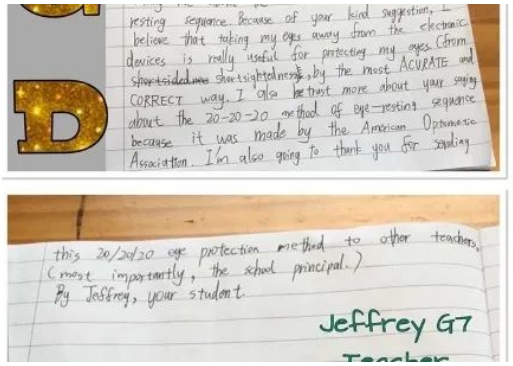 G
D
resting sequence. Because of your kind suggestion, I
believe that taking my eyes away from the electronic
devices is really useful for protecting my eyes (from
shortsidednes shortsightedness), by the most ACURATE and
CORRECT way. I also trust more about your saying
about the 20-20-20 method of eye-resting sequence
because it was made by the American Optometic
Association. I'm also going to thank you for sending
this 20/20/20 eye protection method to other teachers,
(most importantly, the school principal.)
By Jeffrey, your student.
Jeffrey G7
Teacher